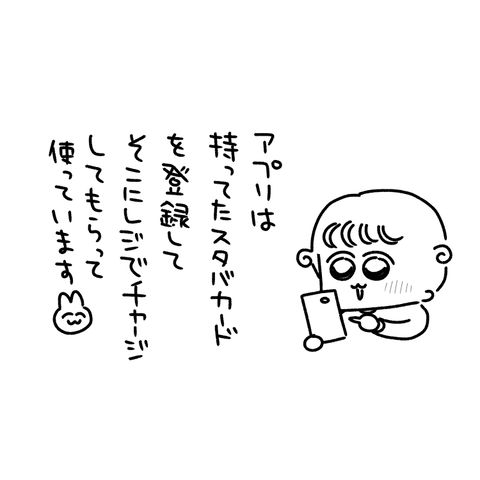 アプリは
持ってたスタバカード
を登録して
そこにレジでチャージ
してもらって
使っています